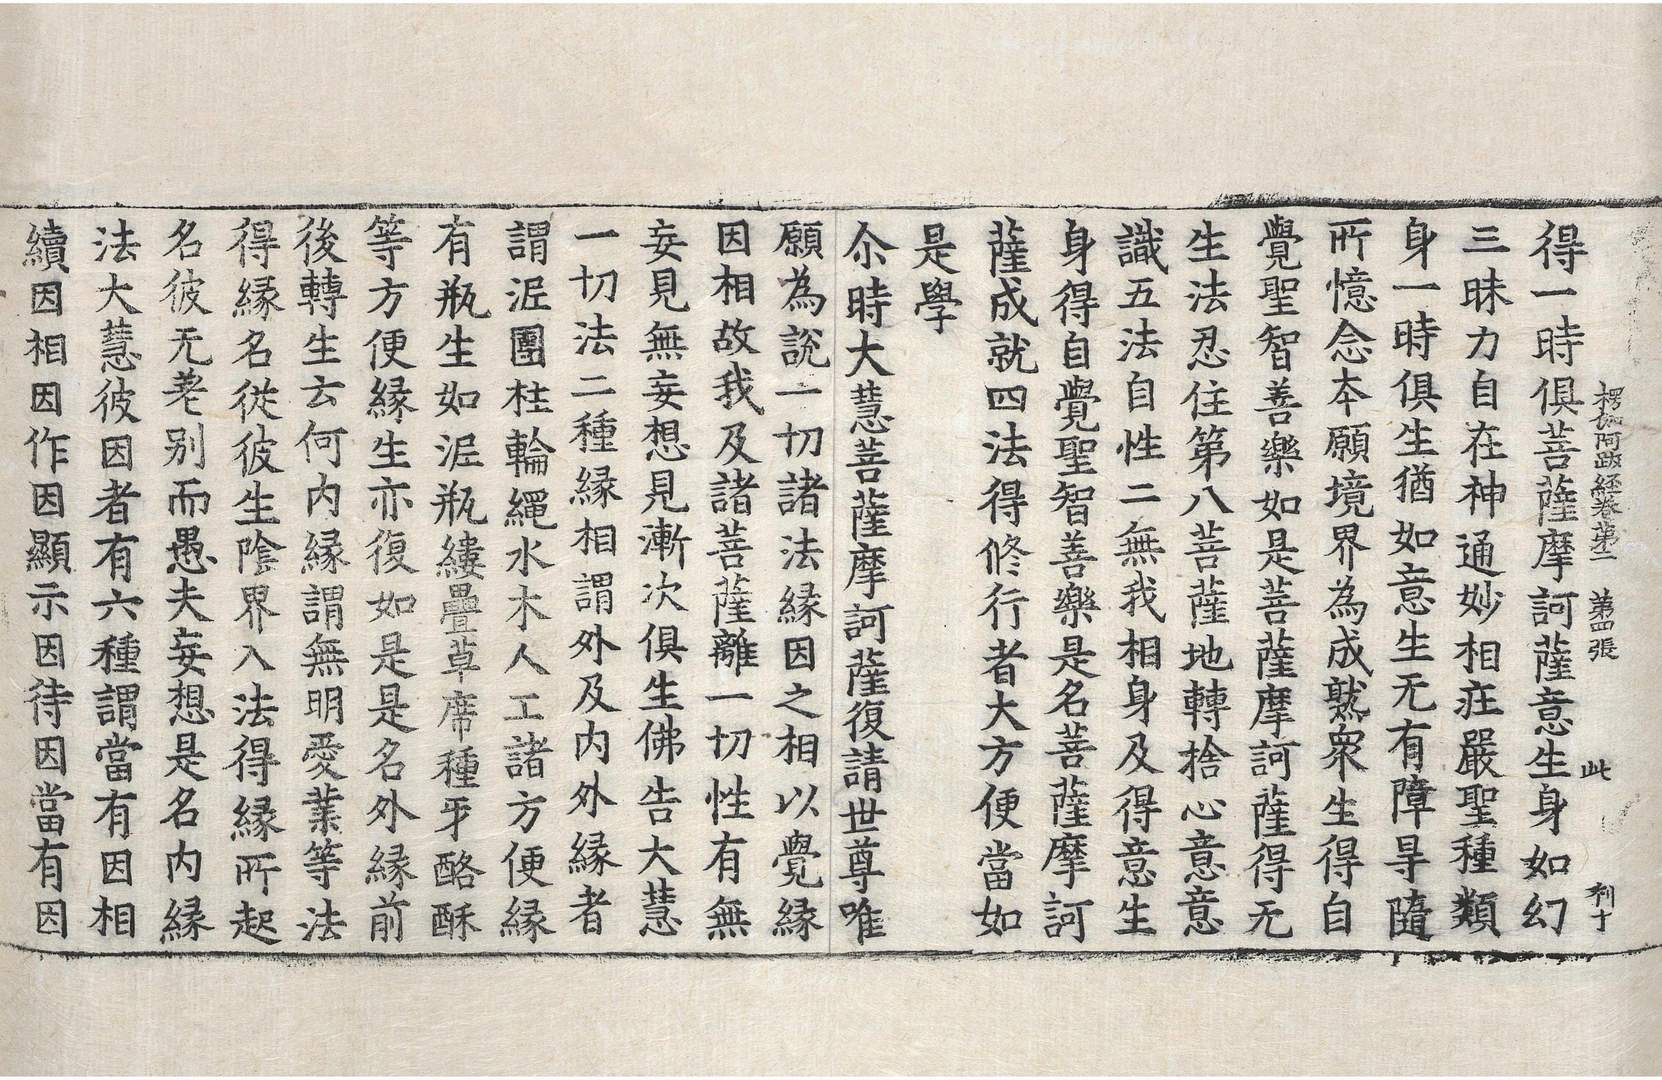 楞伽阿跋經卷第二　第四張　此　刹十
得一時俱菩薩摩訶薩意生身如幻
三昧力自在神通妙相莊嚴聖種類
身一時俱生猶如意生无有障㝵隨
所憶念本願境界為成熟衆生得自
覺聖智善樂如是菩薩摩訶薩得无
生法忍住第八菩薩地轉捨心意意
識五法自性二無我相身及得意生
身得自覺聖智善樂是名菩薩摩訶
薩成就四法得修行者大方便當如
是學
尒時大慧菩薩摩訶薩復請世尊唯
願為說一切諸法緣因之相以覺緣
因相故我及諸菩薩離一切性有無
妄見無妄想見漸次俱生佛告大慧
一切法二種緣相謂外及內外緣者
謂泥團柱輪繩水木人工諸方便緣
有瓶生如泥瓶縷疊草席種牙酪酥
等方便緣生亦復如是是名外緣前
後轉生云何內緣謂無明愛業等法
得緣名從彼生陰界入法得緣所起
名彼无差別而愚夫妄想是名內緣
法大慧彼因者有六種謂當有因相
續因相因作因顯示因待因當有因